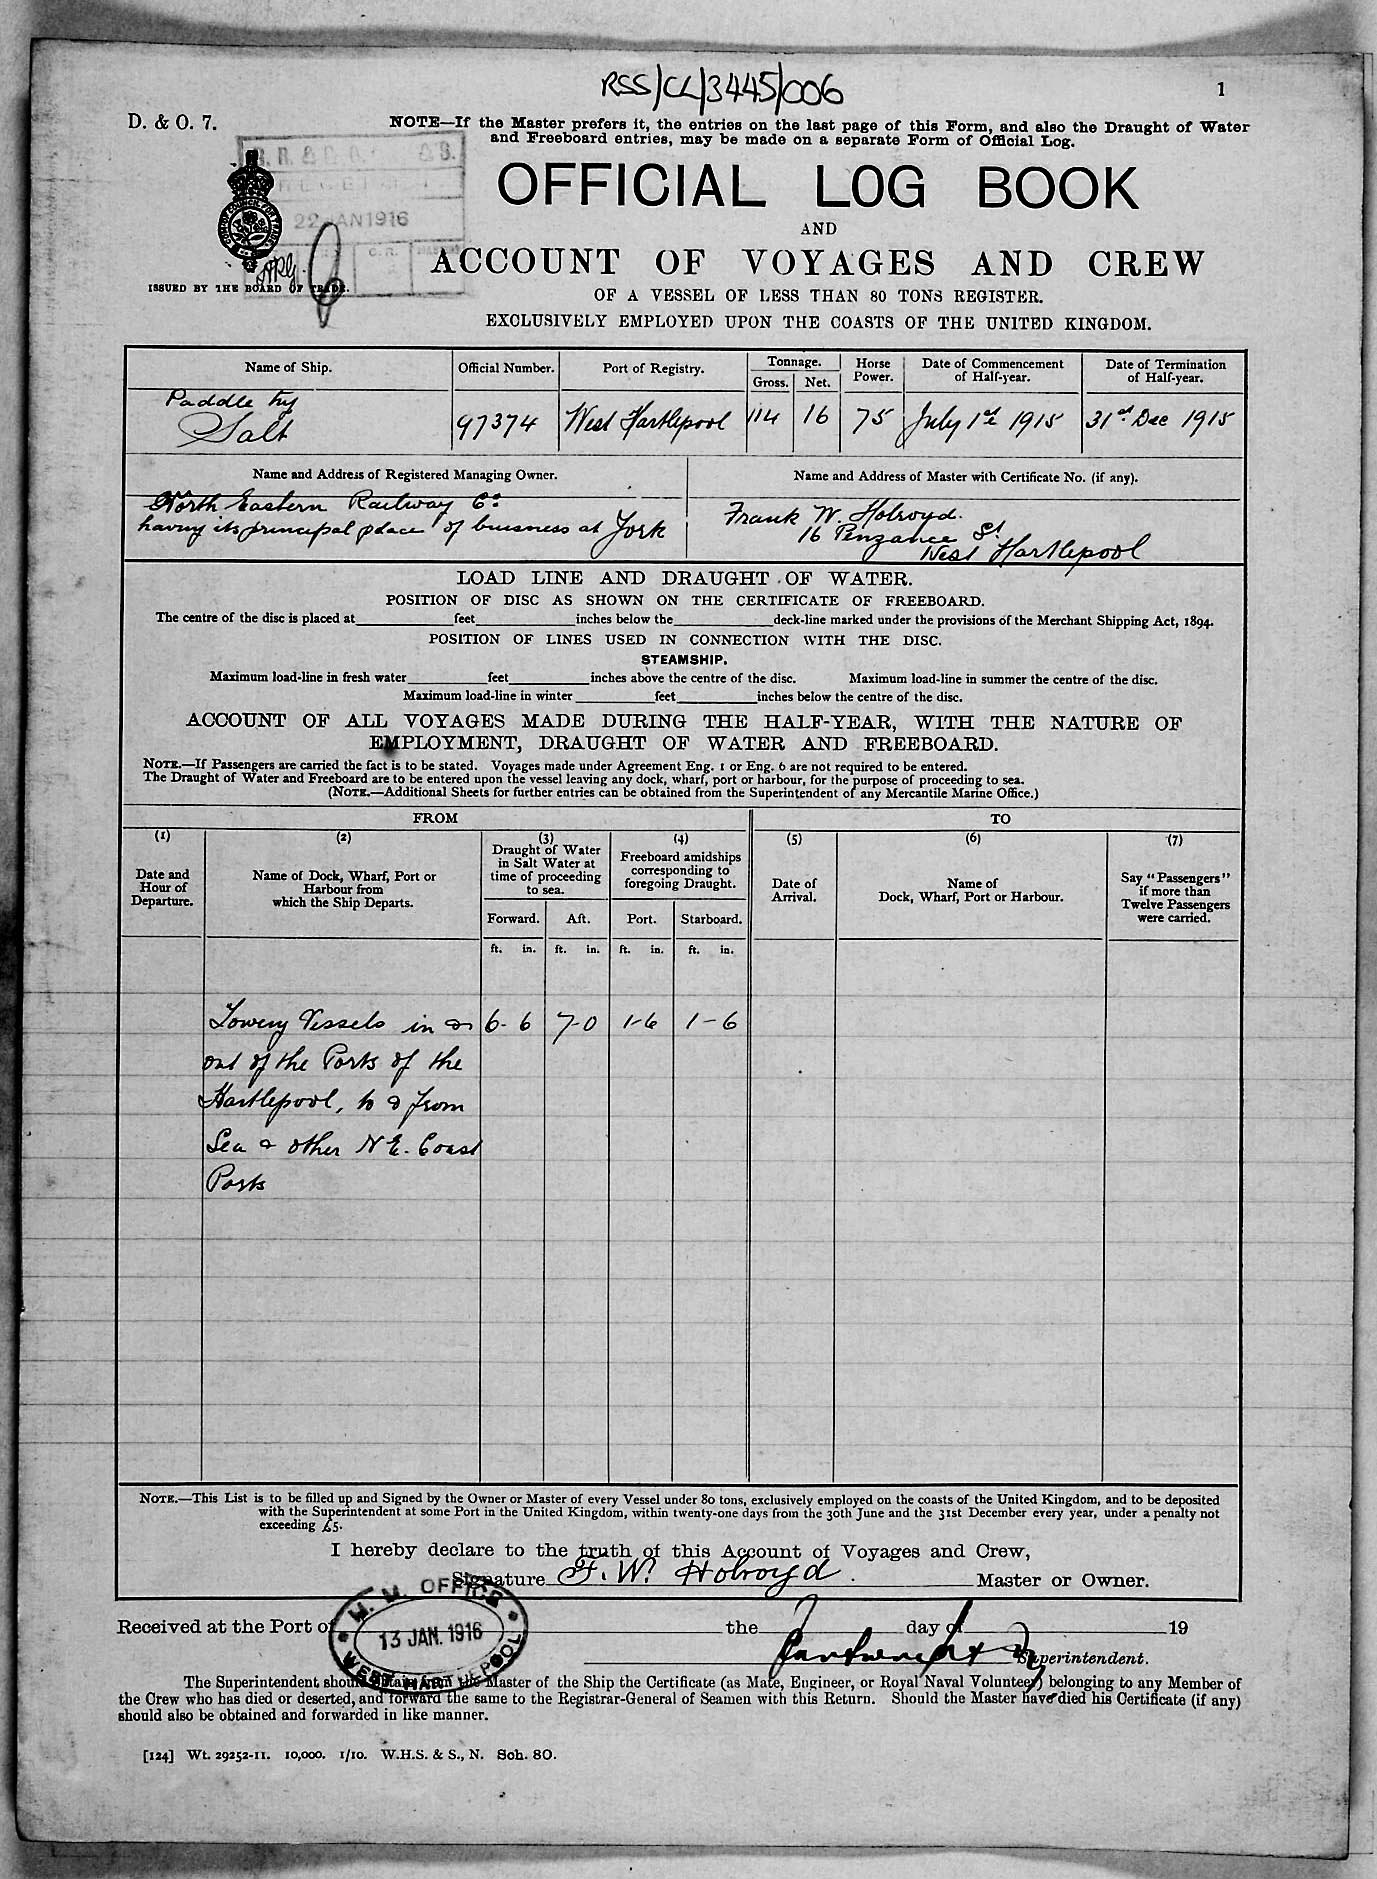 RSS/CL/3445/006
1
D. & O. 7.
NOTE—If the Master prefers it, the entries on the last page of this Form, and also the Draught of Water
and Freeboard entries, may be made on a separate Form of Official Log.
22 JAN 1916
OFFICIAL LOG BOOK
AND
ACCOUNT OF VOYAGES AND CREW
ISSUED BY THE BOARD OF TRADE.
OF A VESSEL OF LESS THAN 80 TONS REGISTER.
EXCLUSIVELY EMPLOYED UPON THE COASTS OF THE UNITED KINGDOM.
Name of Ship. Official Number. Port of Registry. Tonnage. Gross. Net. Horse Power. Date of Commencement of Half-year. Date of Termination of Half-year.
Paddle Tug
Salt 97374 West Hartlepool 114 16 75 July 1st 1915 31st Dec 1915
Name and Address of Registered Managing Owner. Name and Address of Master with Certificate No. (if any).
North Eastern Railway Co
having its principal place of buisness at York
Frank W. Holroyd.
16 Penzance St
West Hartlepool
LOAD LINE AND DRAUGHT OF WATER.
POSITION OF DISC AS SHOWN ON THE CERTIFICATE OF FREEBOARD.
The centre of the disc is placed at feet inches below the deck-line marked under the provisions of the Merchant Shipping Act, 1894.
POSITION OF LINES USED IN CONNECTION WITH THE DISC.
STEAMSHIP.
Maximum load-line in fresh water feet inches above the centre of the disc. Maximum load-line in summer the centre of the disc.
Maximum load-line in winter feet inches below the centre of the disc.
ACCOUNT OF ALL VOYAGES MADE DURING THE HALF-YEAR, WITH THE NATURE OF
EMPLOYMENT, DRAUGHT OF WATER AND FREEBOARD.
NOTE.—If Passengers are carried the fact is to be stated. Voyages made under Agreement Eng. 1 or Eng. 6 are not required to be entered.
The Draught of Water and Freeboard are to be entered upon the vessel leaving any dock, wharf, port or harbour, for the purpose of proceeding to sea.
(NOTE.—Additional Sheets for further entries can be obtained from the Superintendent of any Mercantile Marine Office.)
FROM TO
(1) (2) (3) (4) (5) (6) (7)
Date and Hour of Departure.
Name of Dock, Wharf, Port or Harbour from which the Ship Departs.
Draught of Water in Salt Water at time of proceeding to sea.
Freeboard amidships corresponding to foregoing Draught.
Date of Arrival.
Name of Dock, Wharf, Port or Harbour.
Say "Passengers" if more than Twelve Passengers were carried.
Forward. Aft. Port. Starboard.
ft. in. ft. in. ft. in. ft. in.
Towing Vessels in & 6-6 7-0 1-6 1-6
out of the Ports of the
Hartlepool, to & from
Sea & other N.E. Coast
Ports
NOTE.—This List is to be filled up and Signed by the Owner or Master of every Vessel under 80 tons, exclusively employed on the coasts of the United Kingdom, and to be deposited
with the Superintendent at some Port in the United Kingdom, within twenty-one days from the 30th June and the 31st December every year, under a penalty not
exceeding £5.
I hereby declare to the truth of this Account of Voyages and Crew,
Signature F. W. Holroyd. Master or Owner.
M. M. OFFICE
13 JAN. 1916
WEST HARTLEPOOL
Received at the Port of the day of 19
Superintendent.
The Superintendent should obtain from the Master of the Ship the Certificate (as Mate, Engineer, or Royal Naval Volunteer) belonging to any Member of
the Crew who has died or deserted, and forward the same to the Registrar-General of Seamen with this Return. Should the Master have died his Certificate (if any)
should also be obtained and forwarded in like manner.
[124] Wt. 29252-11. 10,000. 1/10. W.H.S. & S., N. Sch. 80.